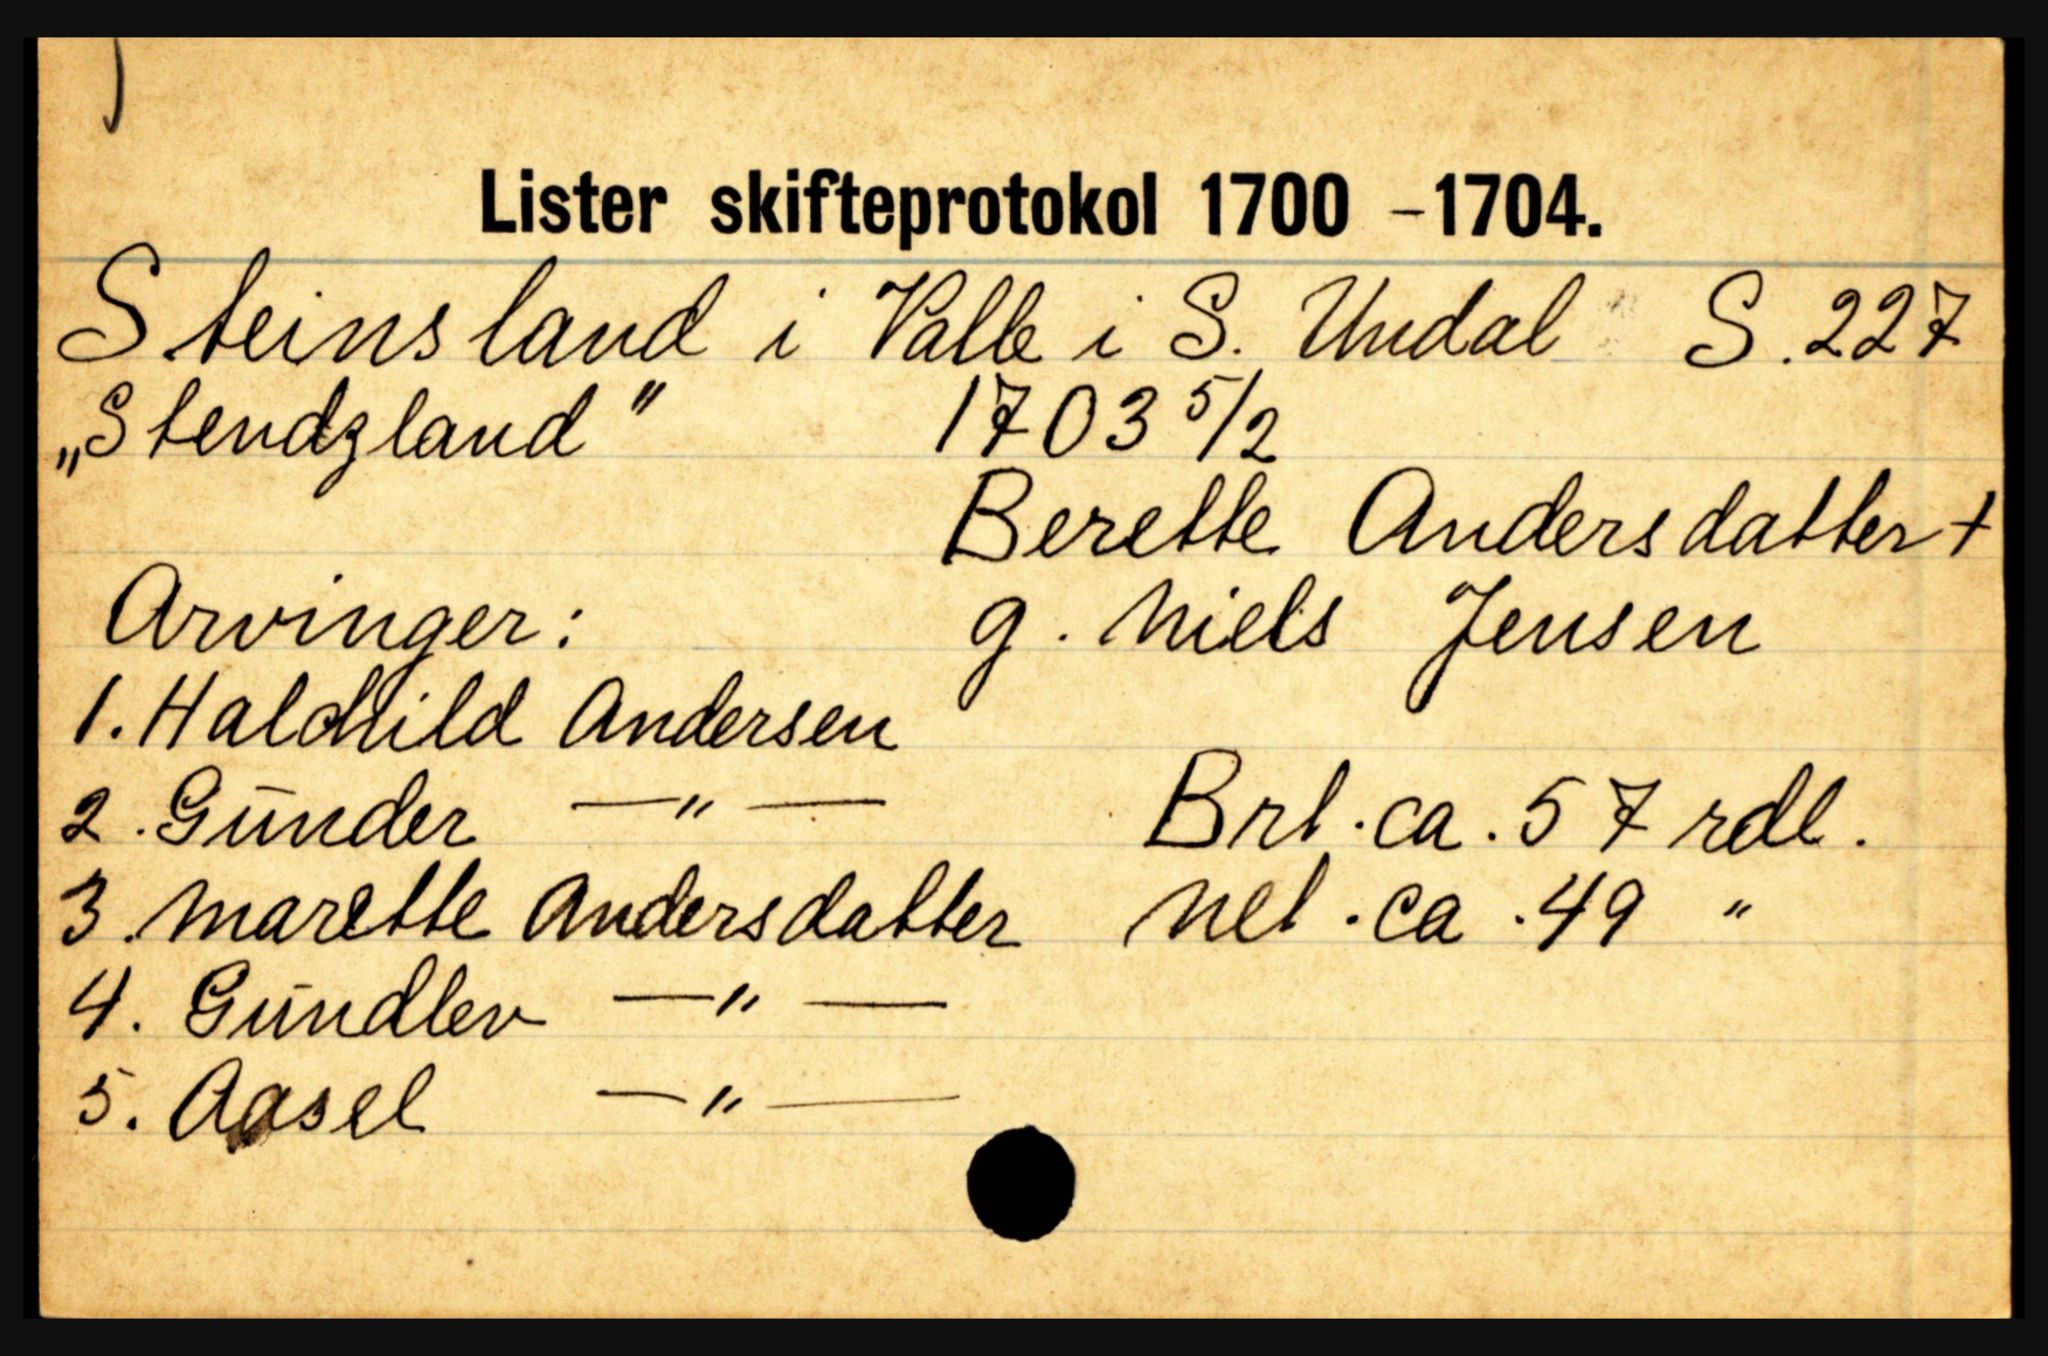 Lister skifteprotokol 1700 - 1704.
Steinsland i Valle i S. Undal S. 227
„Stendzland" 1703 5/2
Berette Andersdatter +
Arvinger: g. Niels Jensen
1. Halchild Andersen
2. Gūnder —„— Brt. ca. 57 rdl.
3. Marette Andersdatter Net. ca. 49 "
4. Gūndlev —„—
5. Aasel —„—